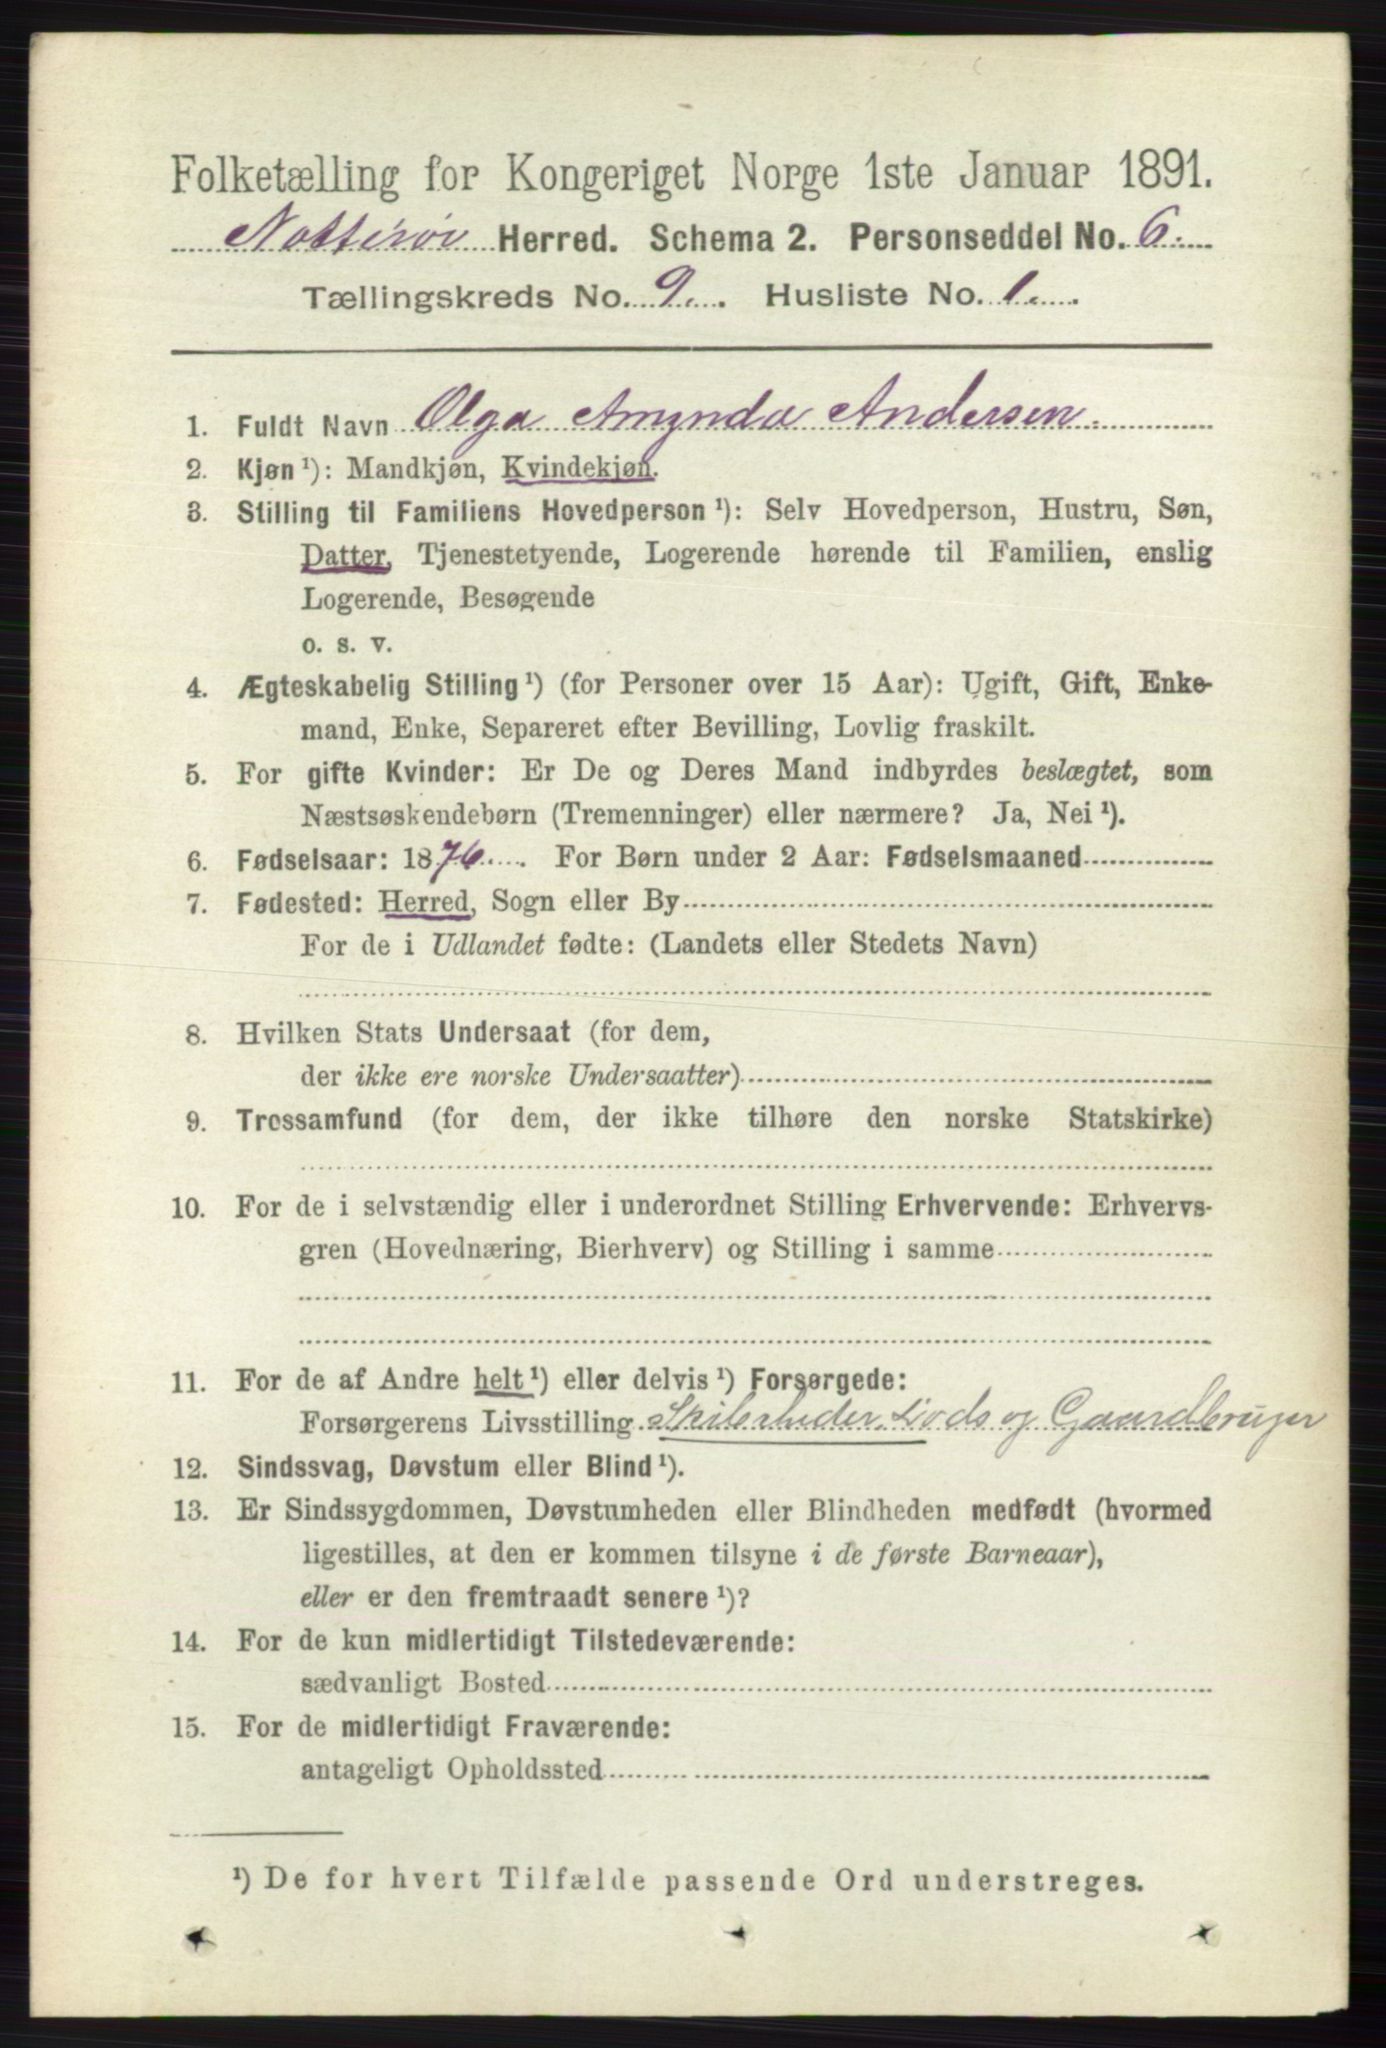 Folketælling for Kongeriget Norge 1ste Januar 1891.
Nøtterøi Herred. Schema 2. Personseddel No. 6.
Tællingskreds No. 9. Husliste No. 1.
1. Fuldt Navn Olga Amynda Andersen.
2. Kjøn ¹): Mandkjøn, Kvindekjøn.
3. Stilling til Familiens Hovedperson ¹): Selv Hovedperson, Hustru, Søn,
Datter, Tjenestetyende, Logerende hørende til Familien, enslig
Logerende, Besøgende
o. s. v.
4. Ægteskabelig Stilling ¹) (for Personer over 15 Aar): Ugift, Gift, Enke-
mand, Enke, Separeret efter Bevilling, Lovlig fraskilt.
5. For gifte Kvinder: Er De og Deres Mand indbyrdes beslægtet, som
Næstsøskendebørn (Tremenninger) eller nærmere? Ja, Nei ¹).
6. Fødselsaar: 1876. For Børn under 2 Aar: Fødselsmaaned
7. Fødested: Herred, Sogn eller By
For de i Udlandet fødte: (Landets eller Stedets Navn)
8. Hvilken Stats Undersaat (for dem,
der ikke ere norske Undersaatter)
9. Trossamfund (for dem, der ikke tilhøre den norske Statskirke)
10. For de i selvstændig eller i underordnet Stilling Erhvervende: Erhvervs-
gren (Hovednæring, Bierhverv) og Stilling i samme
11. For de af Andre helt ¹) eller delvis ¹) Forsørgede:
Forsørgerens Livsstilling Skibsrheder, Lods og Gaardbruger
12. Sindssvag, Døvstum eller Blind ¹).
13. Er Sindssygdommen, Døvstumheden eller Blindheden medfødt (hvormed
ligestilles, at den er kommen tilsyne i de første Barneaar),
eller er den fremtraadt senere ¹)?
14. For de kun midlertidigt Tilstedeværende:
sædvanligt Bosted
15. For de midlertidigt Fraværende:
antageligt Opholdssted
¹) De for hvert Tilfælde passende Ord understreges.